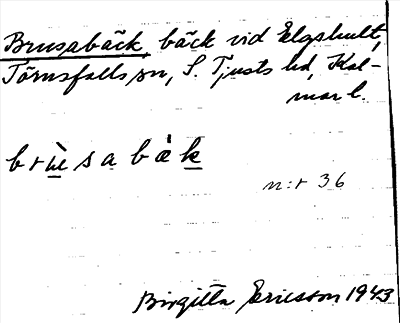 Brusabäck bäck vid Elgshult,
Törnsfalls sn, S. Tjusts hd, Kal-
mar l.
brùsabàk
n:r 36
Birgitta Ericsson 1943